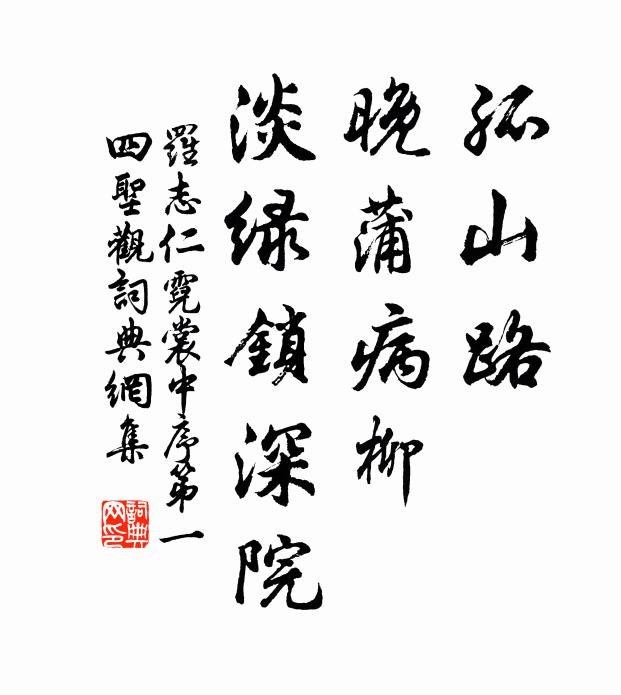 孤山路
晚蒲病柳
淡緑鎖深院
羅志仁霓裳中序第一
四聖觀詞典網集
詞典網印